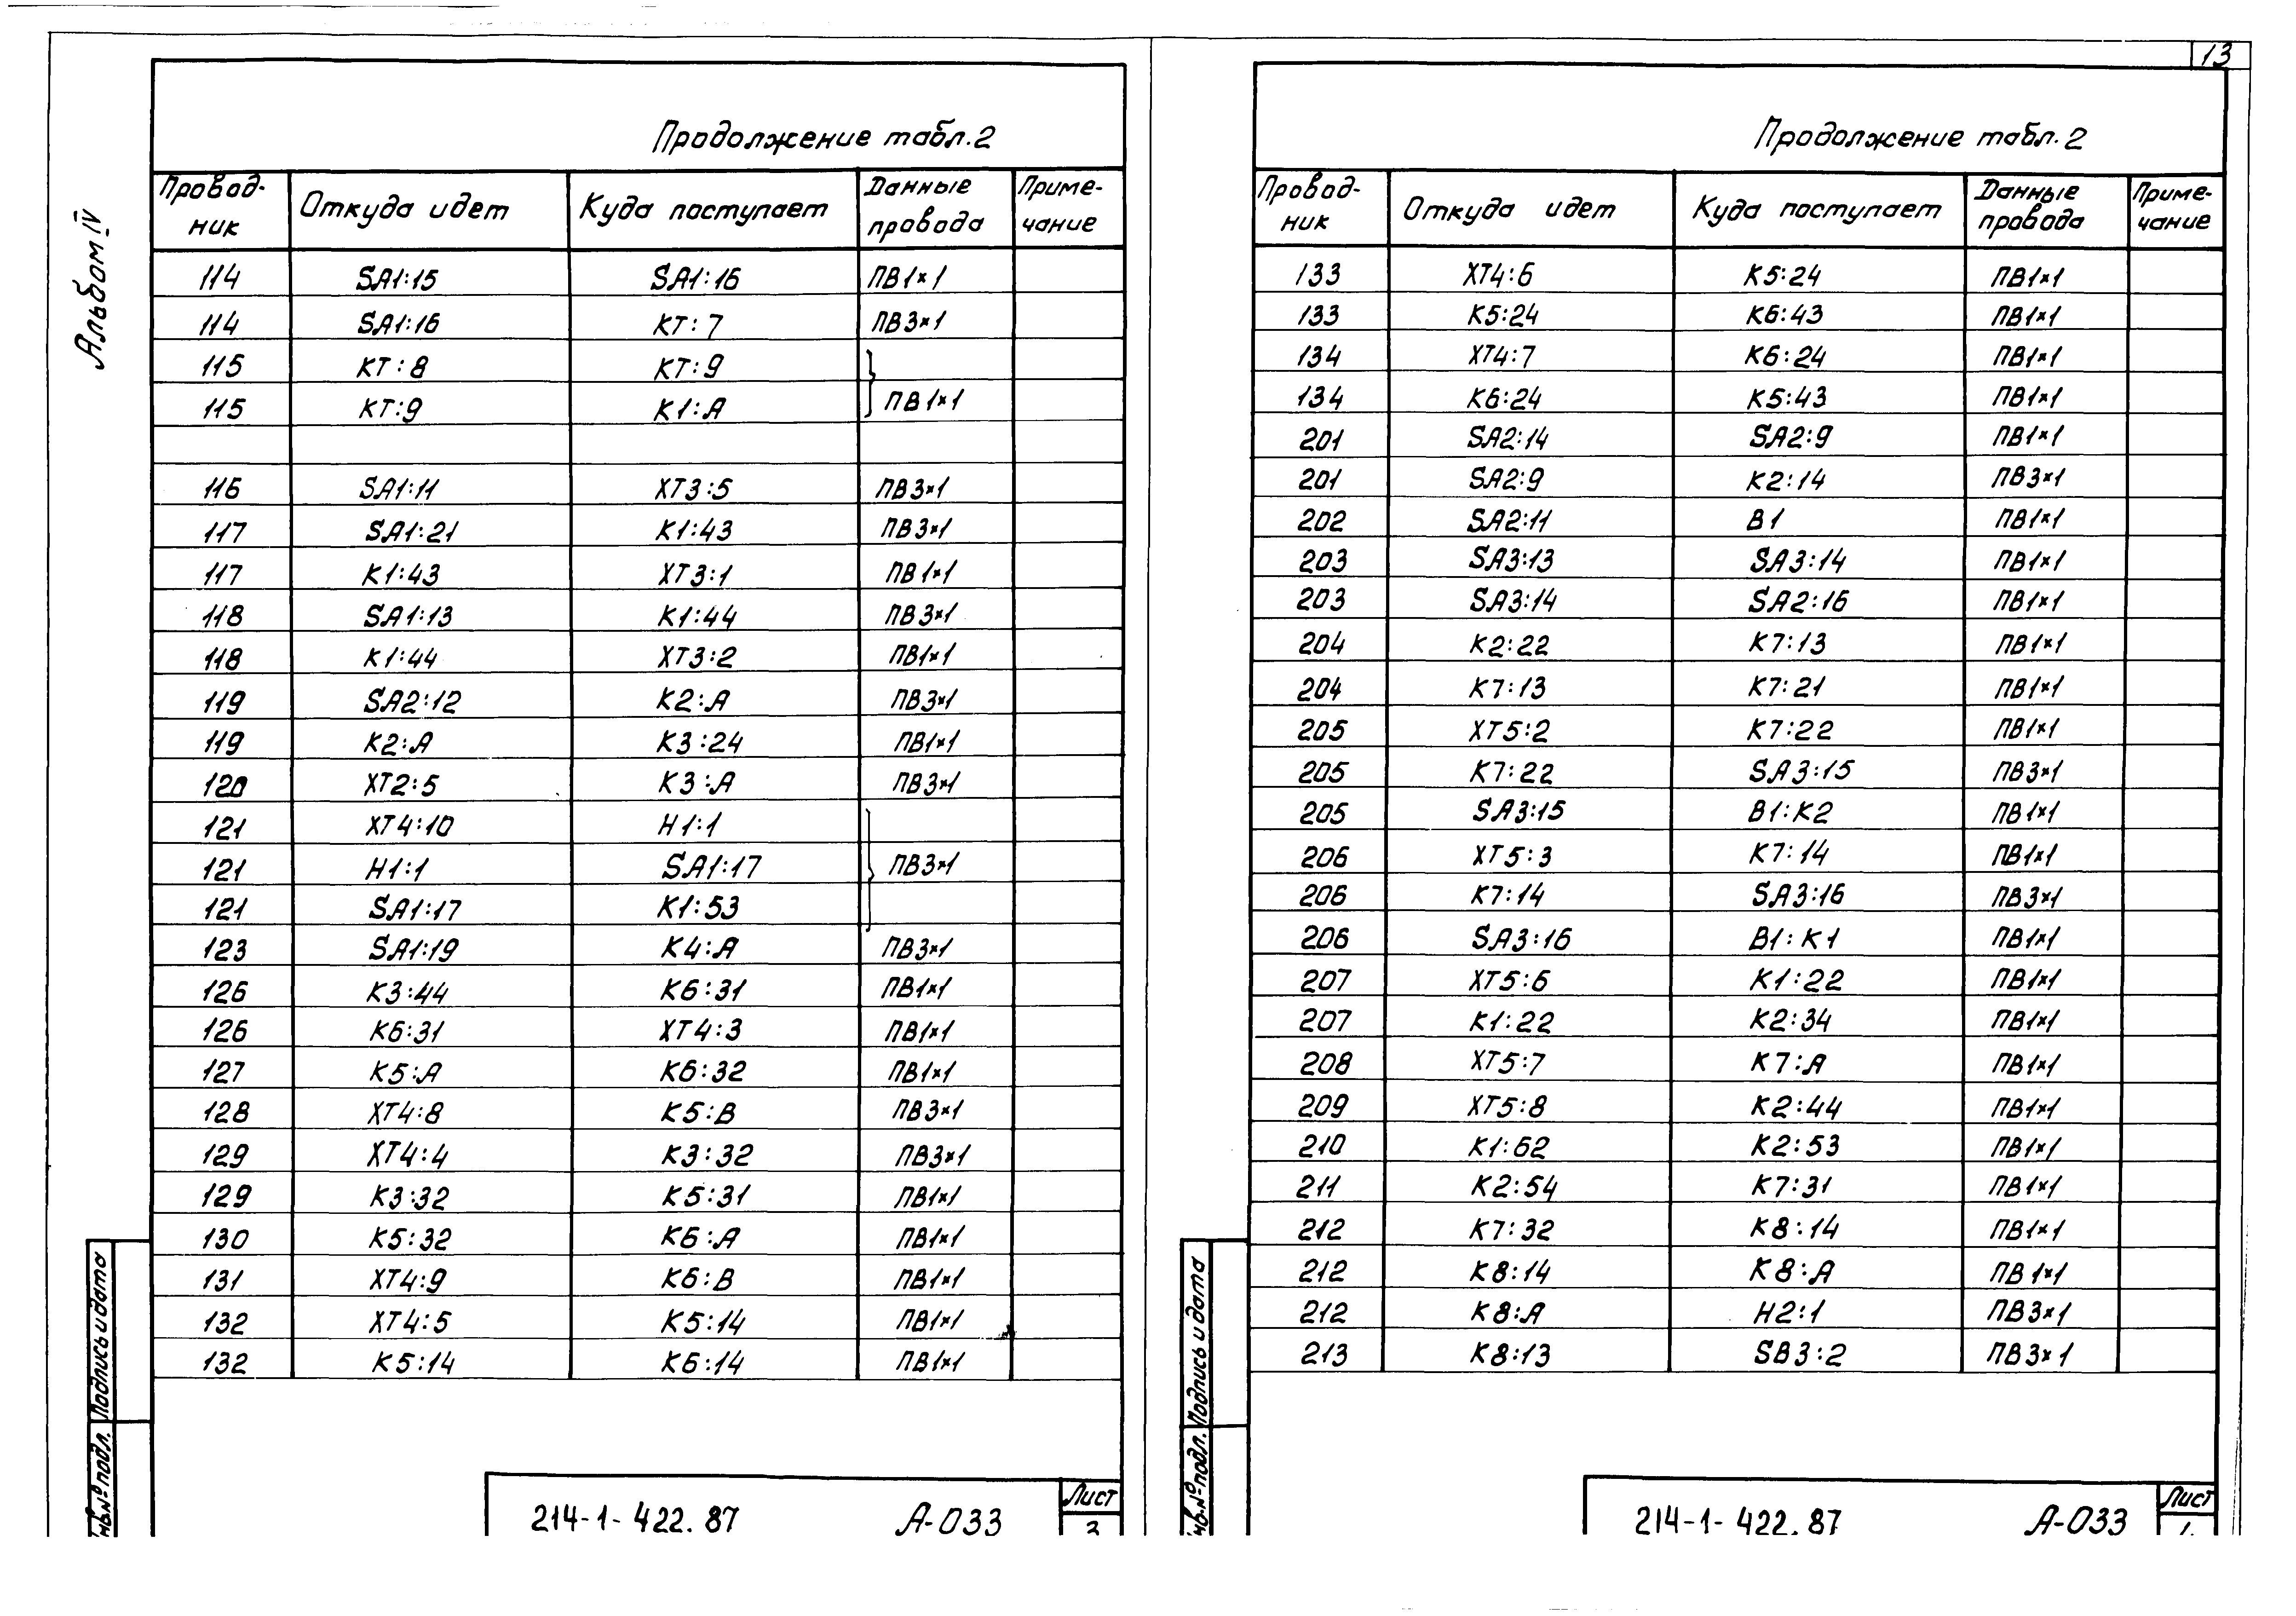 13
Альбом IV
Продолжение табл.2
Провод-ник Откуда идет Куда поступает Данные провода Приме-чание
114 SA1:15 SA1:16 ПВ1×1
114 SA1:16 КТ:7 ПВ3×1
115 КТ:8 КТ:9
115 КТ:9 К1:А ПВ1×1
116 SA1:11 ХТ3:5 ПВ3×1
117 SA1:21 К1:43 ПВ3×1
117 К1:43 ХТ3:1 ПВ1×1
118 SA1:13 К1:44 ПВ3×1
118 К1:44 ХТ3:2 ПВ1×1
119 SA2:12 К2:А ПВ3×1
119 К2:А К3:24 ПВ1×1
120 ХТ2:5 К3:А ПВ3×1
121 ХТ4:10 Н1:1
121 Н1:1 SA1:17 ПВ3×1
121 SA1:17 К1:53
123 SA1:19 К4:А ПВ3×1
126 К3:44 К6:31 ПВ1×1
126 К6:31 ХТ4:3 ПВ1×1
127 К5:А К6:32 ПВ1×1
128 ХТ4:8 К5:В ПВ3×1
129 ХТ4:4 К3:32 ПВ3×1
129 К3:32 К5:31 ПВ1×1
130 К5:32 К6:А ПВ1×1
131 ХТ4:9 К6:В ПВ1×1
132 ХТ4:5 К5:14 ПВ1×1
132 К5:14 К6:14 ПВ1×1
Подпись и дата
№ подл.
214-1-422.87 А-033 Лист
3
Продолжение табл.2
Провод-ник Откуда идет Куда поступает Данные провода Приме-чание
133 ХТ4:6 К5:24 ПВ1×1
133 К5:24 К6:43 ПВ1×1
134 ХТ4:7 К6:24 ПВ1×1
134 К6:24 К5:43 ПВ1×1
201 SA2:14 SA2:9 ПВ1×1
201 SA2:9 К2:14 ПВ3×1
202 SA2:11 В1 ПВ1×1
203 SA3:13 SA3:14 ПВ1×1
203 SA3:14 SA2:16 ПВ1×1
204 К2:22 К7:13 ПВ1×1
204 К7:13 К7:21 ПВ1×1
205 ХТ5:2 К7:22 ПВ1×1
205 К7:22 SA3:15 ПВ3×1
205 SA3:15 В1:К2 ПВ1×1
206 ХТ5:3 К7:14 ПВ1×1
206 К7:14 SA3:16 ПВ3×1
206 SA3:16 В1:К1 ПВ1×1
207 ХТ5:6 К1:22 ПВ1×1
207 К1:22 К2:34 ПВ1×1
208 ХТ5:7 К7:А ПВ1×1
209 ХТ5:8 К2:44 ПВ1×1
210 К1:62 К2:53 ПВ1×1
211 К2:54 К7:31 ПВ1×1
212 К7:32 К8:14 ПВ1×1
212 К8:14 К8:А ПВ1×1
212 К8:А Н2:1 ПВ3×1
213 К8:13 SB3:2 ПВ3×1
Подпись и дата
№ подл.
214-1-422.87 А-033 Лист